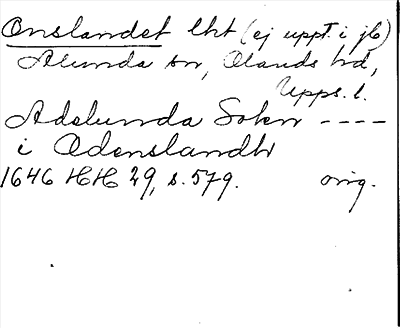 Onslandet lht (ej uppt. i jb)
Alunda sn, Olands hd,
Upps. l.
Adslunda Sokn ----
i Odenslandh
1646 HH 29, s. 579. orig.